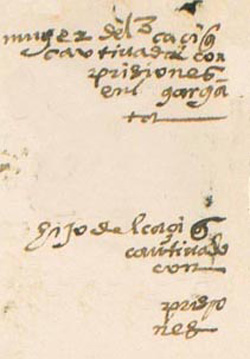 muger del caçiq
cautiuada con
prisiones
en garga
ta
hijo del caçiq
cautiuado
con
prisio
nes